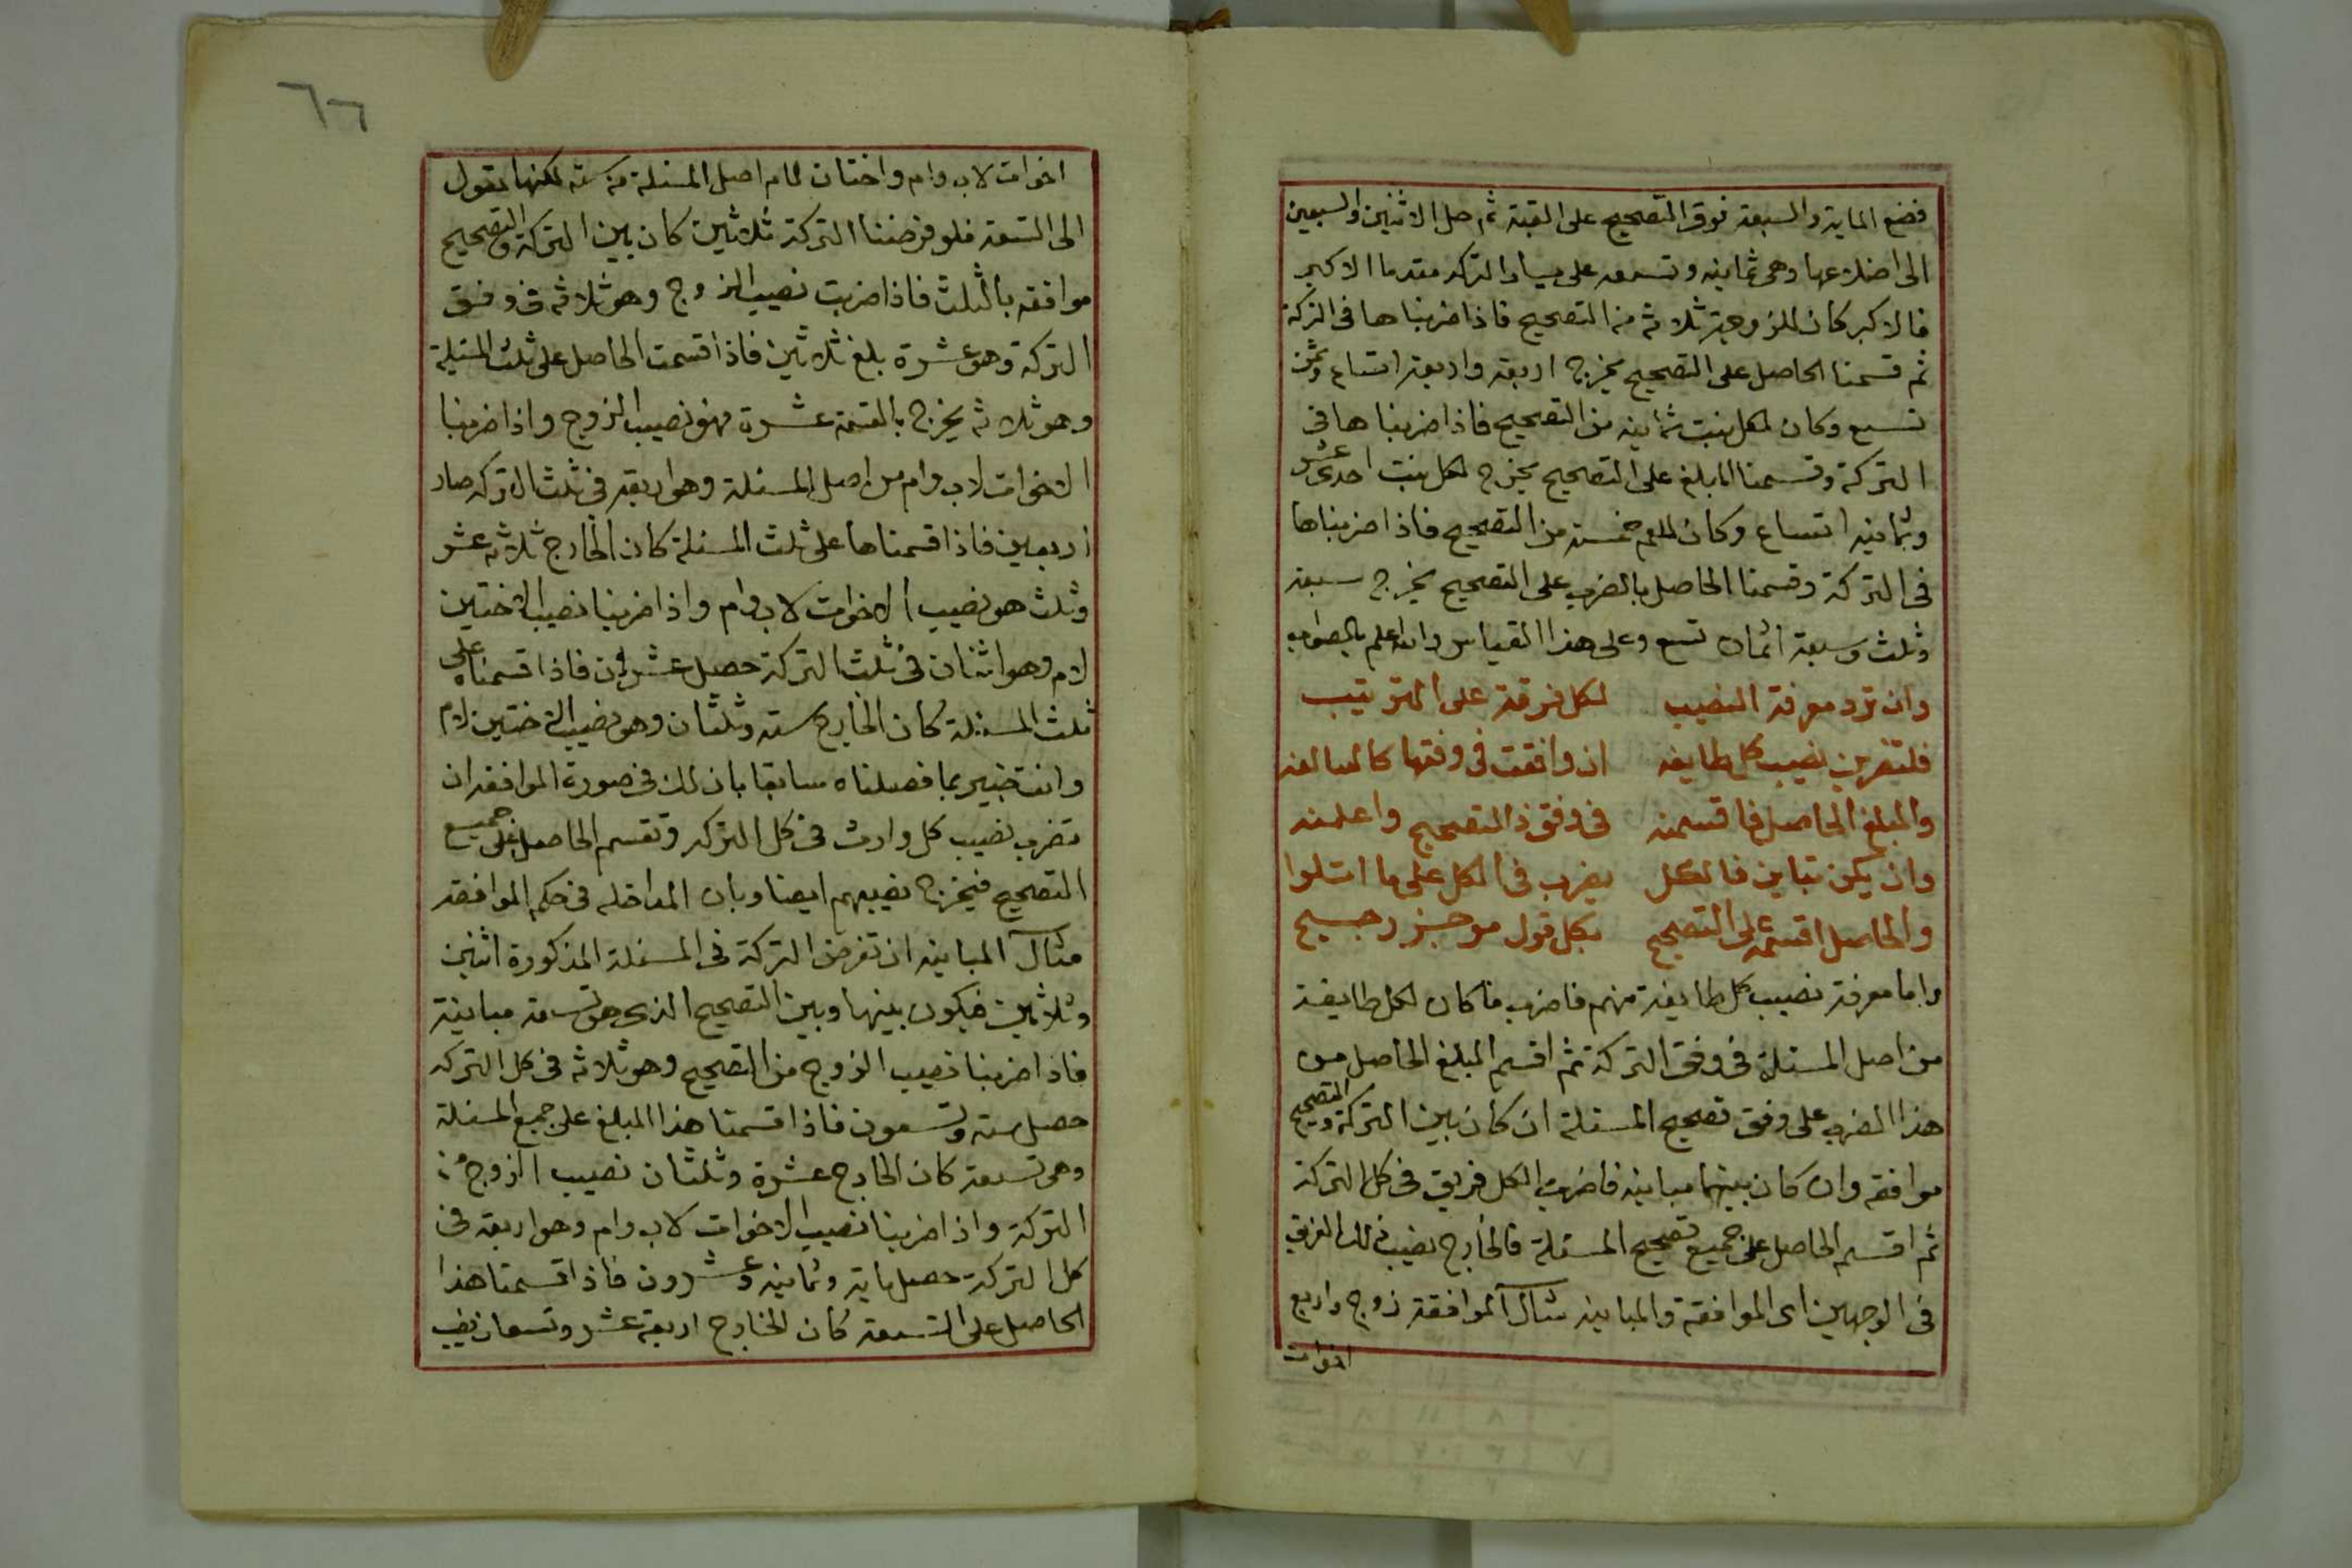 فضع الماية والسبعة فوق التصحيح على القبة ثم حل الاثنين والسبعين
الى اضلاعها وهى ثمانيه وتسعه على يسار التركه مقدما الاكبر
فالاكبر كان للزوجة ثلاثة من التصحيح فاذا ضربناها فى التركة
ثم قسمنا الحاصل على التصحيح يخرج اربعة واربعة اتساع وثمن
تسع وكان لكل بنت ثمانيه من التصحيح فاذا ضربناها فى
التركة وقسمنا المبلغ على التصحيح يخرج لكل بنت احدى عشر
وثمانيه اتساع وكان للعم خمسة من التصحيح فاذا ضربناها
فى التركة وقسمنا الحاصل بالضرب على التصحيح يخرج سبعة
وثلث وسبعة اثمان تسع وعلى هذا القياس والله اعلم بالصواب
وان ترد معرفة النصيب لكل فرقة على الترتيب
فلتضربن نصيب كل طايفه ان وافقت فى وفقها كالسالفه
والمبلغ الحاصل فاقسمنه فى وفق ذا التصحيح واعلمنه
وان يكن تباين فالكل يضرب فى الكل على ما اتلوا
والحاصل اقسمه على التصحيح بكل قول موجز رجيح
واما معرفة نصيب كل طايفة منهم فاضرب ما كان لكل طايفة
من اصل المسئلة فى وفق التركة ثم اقسم المبلغ الحاصل من
هذا الضرب على وفق تصحيح المسئلة ان كان بين التركة والتصحيح
موافقه وان كان بينهما مباينه فاضرب لكل فريق فى كل التركة
ثم اقسم الحاصل على جميع تصحيح المسئلة فالخارج نصيب ذلك الفريق
فى الوجهين اى الموافقة والمباينه مثال الموافقة زوج واربع
اخوات
٦٦
اخوات لاب وام واختان لام اصل المسئلة من سته لكنها تعول
الى التسعة فلو فرضنا التركة ثلاثين كان بين التركة والتصحيح
موافقه بالثلث فاذا ضربت نصيب الزوج وهو ثلاثه فى وفق
التركة وهو عشرة بلغ ثلاثين فاذا قسمت الحاصل على ثلث المسئلة
وهو ثلاثه يخرج بالقسمة عشرة فهو نصيب الزوج واذا ضربنا
الاخوات لاب وام من اصل المسئلة وهو اربعة فى ثلث التركه صار
اربعين فاذا قسمناها على ثلث المسئلة كان الخارج ثلاثه عشر
وثلث هو نصيب الاخوات لاب وام واذا ضربنا نصيب الاختين
لام وهو اثنان فى ثلث التركة حصل عشرون فاذا قسمناه على
ثلث المسئلة كان الخارج سته وثلثان وهو نصيب الاختين لام
وانت خبير بما فصلناه سابقا بان لك فى صورة الموافقه ان
تضرب نصيب كل وارث فى كل التركه وتقسم الحاصل على جميع
التصحيح فيخرج نصيبهم ايضا وبان المداخله فى حكم الموافقه
مثال المباينه ان تفرض التركة فى المسئلة المذكورة اثنين
وثلاثين فيكون بينها وبين التصحيح الذى هو تسعة مباينة
فاذا ضربنا نصيب الزوج من التصحيح وهو ثلاثه فى كل التركه
حصل سته وتسعون فاذا قسمنا هذا المبلغ على جميع المسئلة
وهى تسعة كان الخارج عشرة وثلثان نصيب الزوج من
التركة واذا ضربنا نصيب الاخوات لاب وام وهو اربعة فى
كل التركة حصل ماية وثمانيه وعشرون فاذا قسمنا هذا
الحاصل على التسعة كان الخارج اربعة عشر وتسعان نصيب